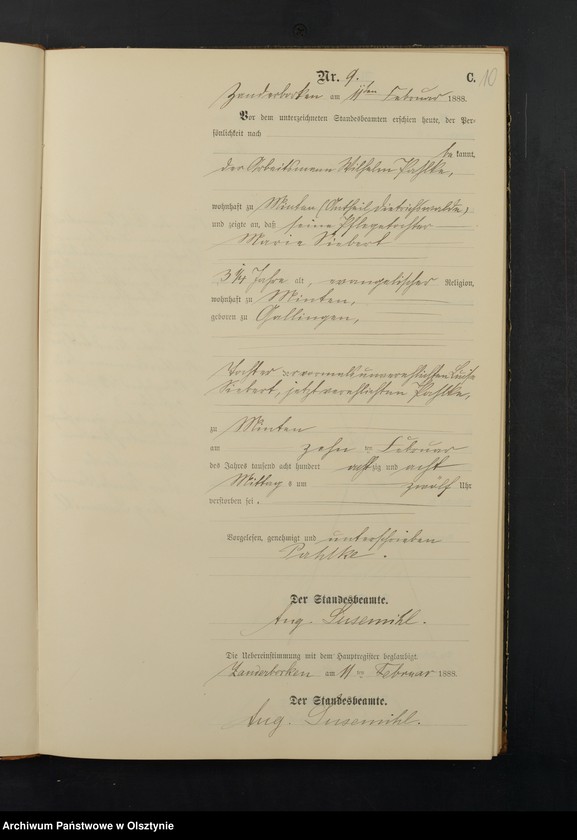 Nr. 9.
C. 10
Zanderborken am 11ten Februar 1888.
Vor dem unterzeichneten Standesbeamten erschien heute, der Per-
sönlichkeit nach
be kannt,
der Arbeitsmann Wilhelm Pahlke,
wohnhaft zu Minten (Antheil Dietrichswalde)
und zeigte an, daß seine Pflegetochter
Marie Siebert
3 1/4 Jahre alt, evangelischer Religion,
wohnhaft zu Minten,
geboren zu Gallingen,
Tochter der vormals unverehlichten Luise
Siebert, jetzt verehlichten Pahlke,
zu Minten
am zehn ten Februar
des Jahres tausend acht hundert achtzig und acht
Mittag s um zwölf Uhr
verstorben sei.
Vorgelesen, genehmigt und unterschrieben
Pahlke.
Der Standesbeamte.
Aug. Susemihl.
Die Uebereinstimmung mit dem Hauptregister beglaubigt.
Zanderborken am 11 ten Februar 1888.
Der Standesbeamte.
Aug. Susemihl.
Archiwum Państwowe w Olsztynie